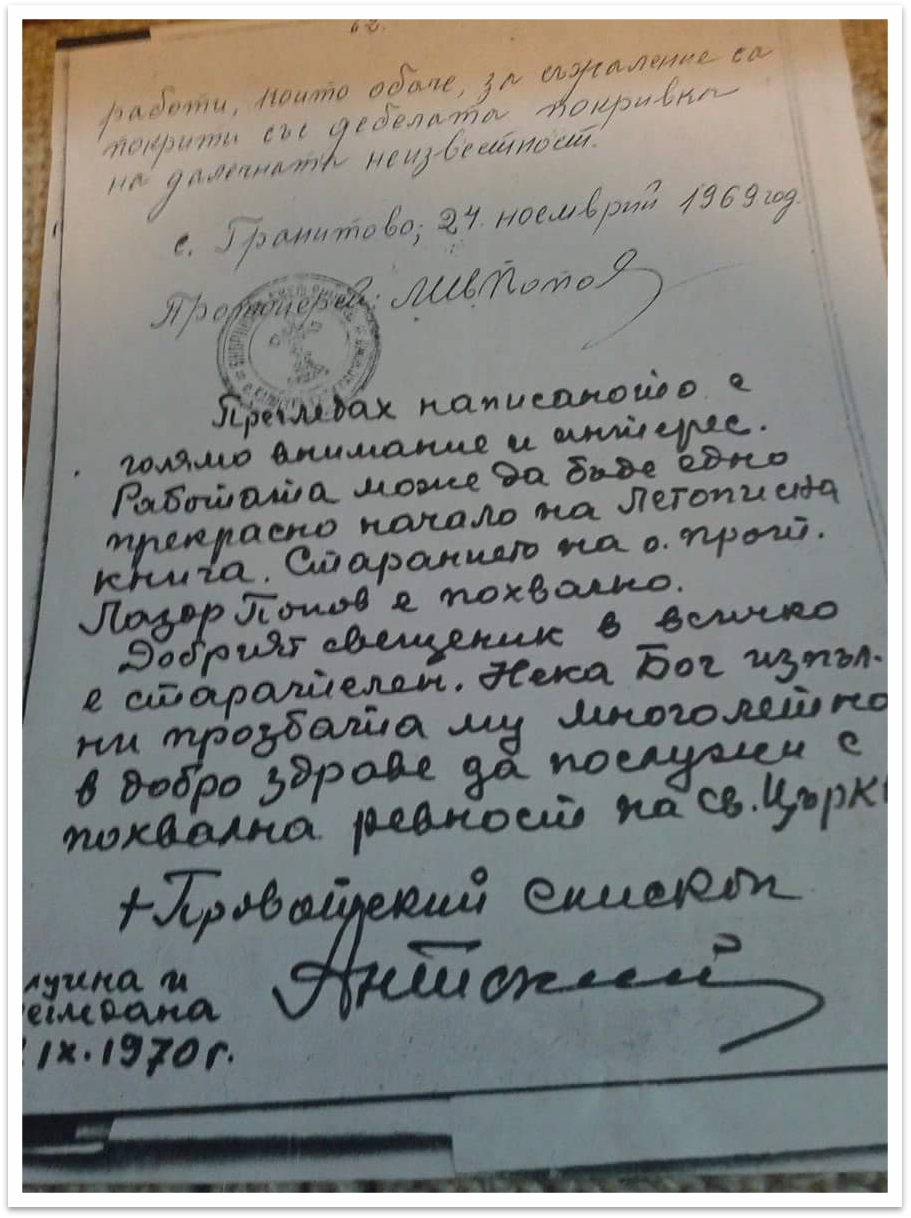 62.
работи, които обаче, за съжаление са
покрити със дебелата покривка
на далечната неизвестност.
с. Гранитово; 24. ноемврий 1969 год.
Протоиерей:
Прегледах написаното с
голямо внимание и интерес.
Работата може да бъде едно
прекрасно начало на Летописна
книга. Старанието на о. прот.
Лазар Попов е похвално.
Добрият свещеник в всичко
е старателен. Нека Бог изпъл-
ни прозбата му многолетно
в добро здраве да послужи с
похвална ревност на св. Църк
+ Проватский епископ
Антоний
лучена и
егледана
IX. 1970 г.